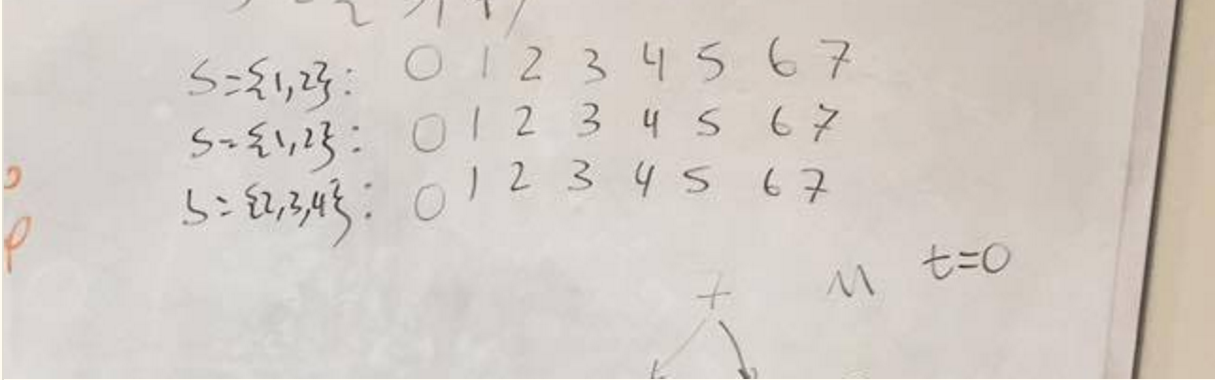 S={1,2}: 0 1 2 3 4 5 6 7
S={1,2}: 0 1 2 3 4 5 6 7
S={2,3,4}: 0 1 2 3 4 5 6 7
t=0
+